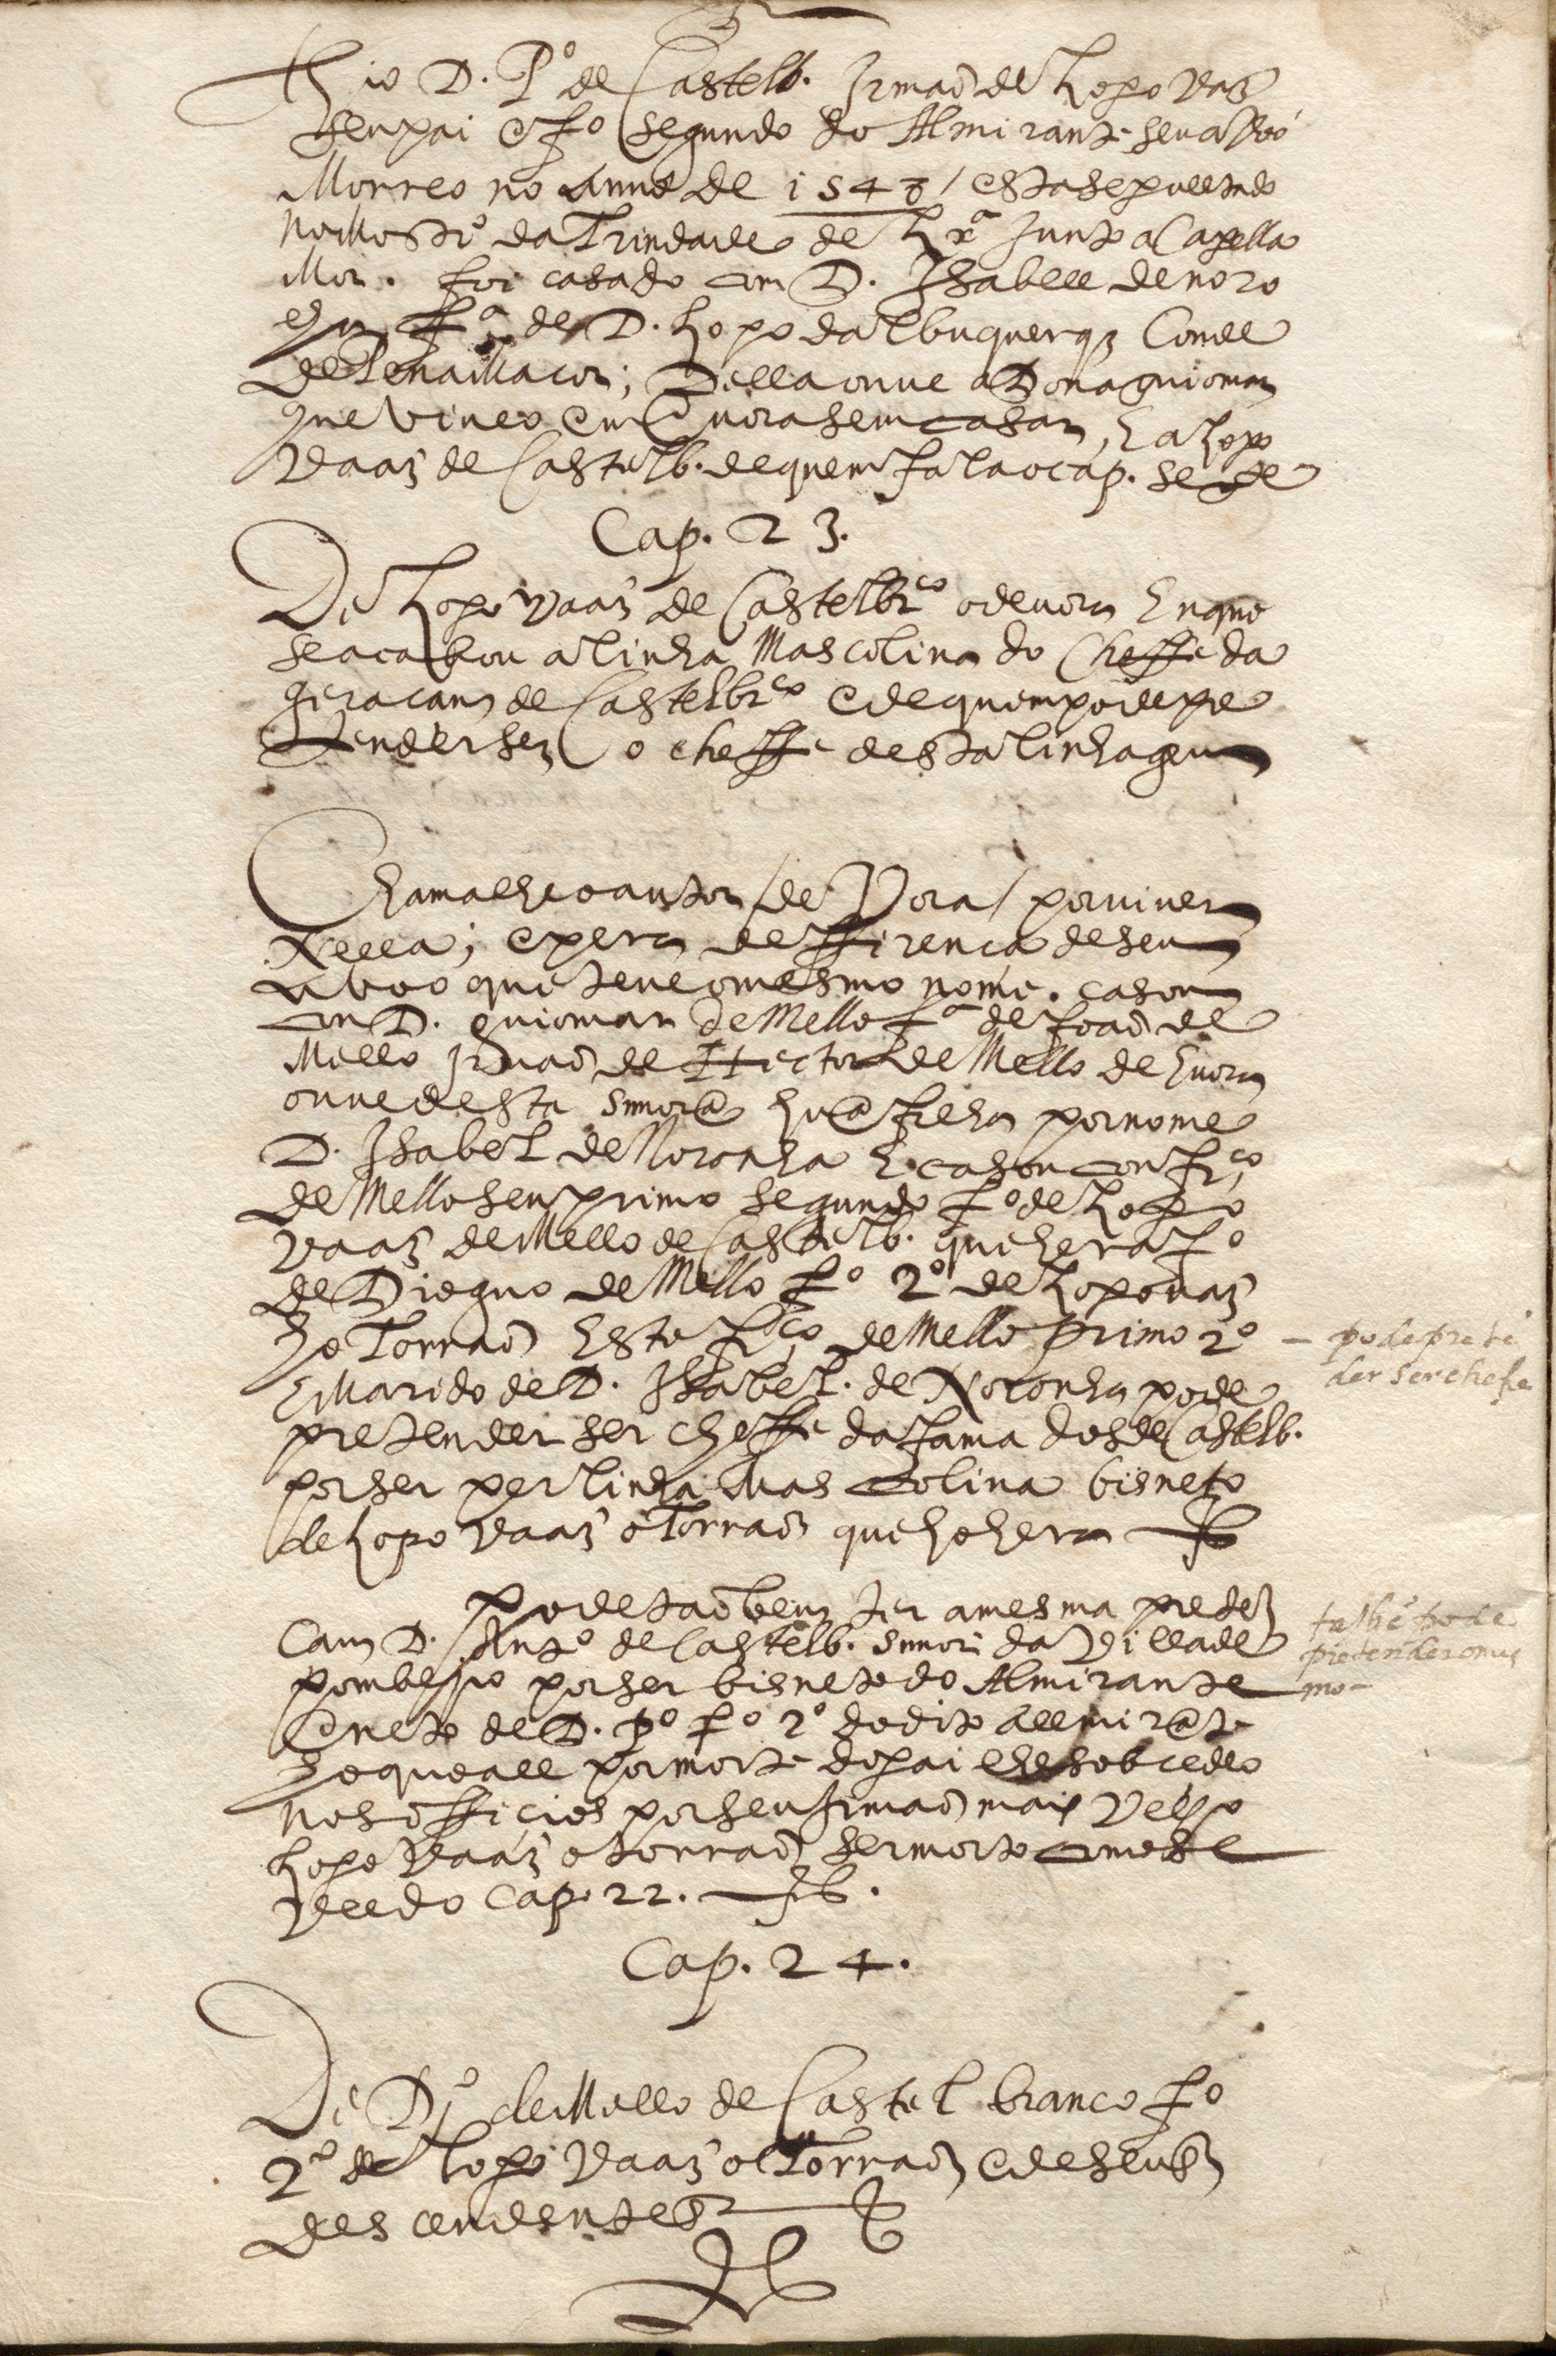 Thio D. P.º de Castelb. Irmaõ de Lopo Vaaz
seu pai e f.º segundo do Almirante seu avoó
Morreo no anno de 1548 / esta sepulltado
no Mostr.º da Trindade de Lx.ª Junto a Capella
Mor. foi casado com D. Isabell de noro
nha f.ª de D. Lopo dalbuquerq3 Conde
de Penamacor; Della ouve a Dona guiomar
que viveo em Evora sem casar, E a Lopo
Vaaz de Castelb. de quem fala o cap. segte
Cap. 23.
De Lopo Vaaz de Castelbr.co o de evora En que
se acabou a linha Mascolina do Cheffe da
geracam de Castelbr.co e de quem pode pre
tender ser o cheffe desta linhagem
Chamalhe o autor de Vora / por viver
Nella; e pera defirenca de seu
avoo que teve o mesmo nome. casou
com D. guiomar de Mello f.ª de Joaõ de
Mello Irmaõ de Hector de Mello de Evora
ouve desta snnora hu@ filha por nome
D. Isabel de Noronha E casou com fr.co
de Mello seu primo segundo f.º de Lopo
Vaaz de Mello de Castelb. que hera f.º
de Dioguo de Mello f.º 2º de Lopo vaaz
ho Torraõ Este fr.co de Mello primo 2º
E Marido de D. Isabel. de Noronha pode
pretender ser cheffe da fama dos de Castelb.
por ser per linha Mascolina bisneto
de Lopo Vaaz o Torraõ que ho hera
pode preté
der ser chefe
Pode taõbem ter a mesma preten
cam D. Ant.º de Castelb. snnor da Villa de
pombeiro por ser bisneto do Almirante
E neto de D. P.º f.º 2º do dito allmir@te
ho quoall por morte do pai lhe sobcedeo
nos officios por seu Irmaõ mais velho
Lopo Vaaz o torraõ ser morto como se
ve do Cap. 22.
pode
pretender o mes
mo
Cap. 24.
De D.º de Mello de Castel branco f.º
2.º de Lopo Vaaz o Torraõ e de seus
descendentes